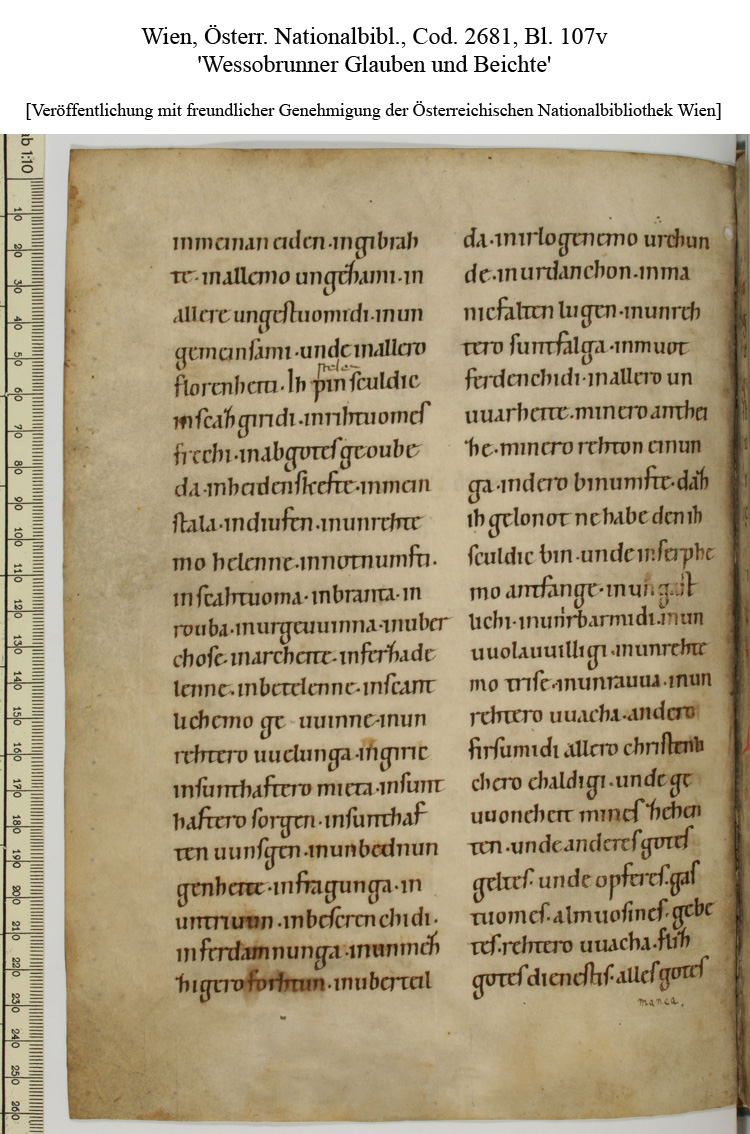 Wien, Österr. Nationalbibl., Cod. 2681, Bl. 107v
'Wessobrunner Glauben und Beichte'
[Veröffentlichung mit freundlicher Genehmigung der Österreichischen Nationalbibliothek Wien]
ab 1:10
inmeinan eiden·ingibrah
te·inallemo ungehami·in
allere ungeſtuomidi·inun
gemeinſami·undeinallero
florenheiti·Ih pin ſculdic
inſcahgiridi·inrihtuomeſ
frechi·inabgoteſgeoube
da·inheidenſkefte·inmein
ſtala·indiufen·inunrehte
mo helenne·innotnumfti·
inſcahtuoma·inbranta·in
rouba·inurgeuuinna·inuber
choſe·inarcheite·inferhade
lenne·inbetelenne·inſcant
lichemo ge uuinne·inun
rehtero uuelunga·ingirie
inſunthaftero mieta·inſunt
haftero ſorgen·inſunthaf
ten uunſgen·inunbednun
genheite·infragunga·in
untriuun·inbeſcrenchidi·
inferdamnunga·inunmeh
higero forhtun·inuberteil
da·inirlogenemo urchun
de·inurdanchon·inma
nicfalten lugen·inunreh
tero ſuntfalga·inmuot
ferdenchidi·inallero un
uuarheite·minero anthei
he·minero rehton einun
ga·indero binumfte·dah
ih gelonot nehabe den ih
ſculdic bin·undeinſerphe
mo antfange·inungaſt
lichi·inunirbarmidi·inun
uuolauuilligi·inunrehte
mo triſe·inunrauua·inun
rehtero uuacha·andero
firſumidi allero chriſtenli
chero chaldigi·unde ge
uuoneheit mineſ hehen
ten·unde andereſgoteſ
gelteſ·unde opfereſ·gaſ
tuomeſ·almuoſineſ·gebe
teſ·rehtero uuacha·flih
goteſdieneſtiſ·alleſgoteſ
manca.
10
20
30
40
50
60
70
80
90
100
110
120
130
140
150
160
170
180
190
200
210
220
230
240
250
260